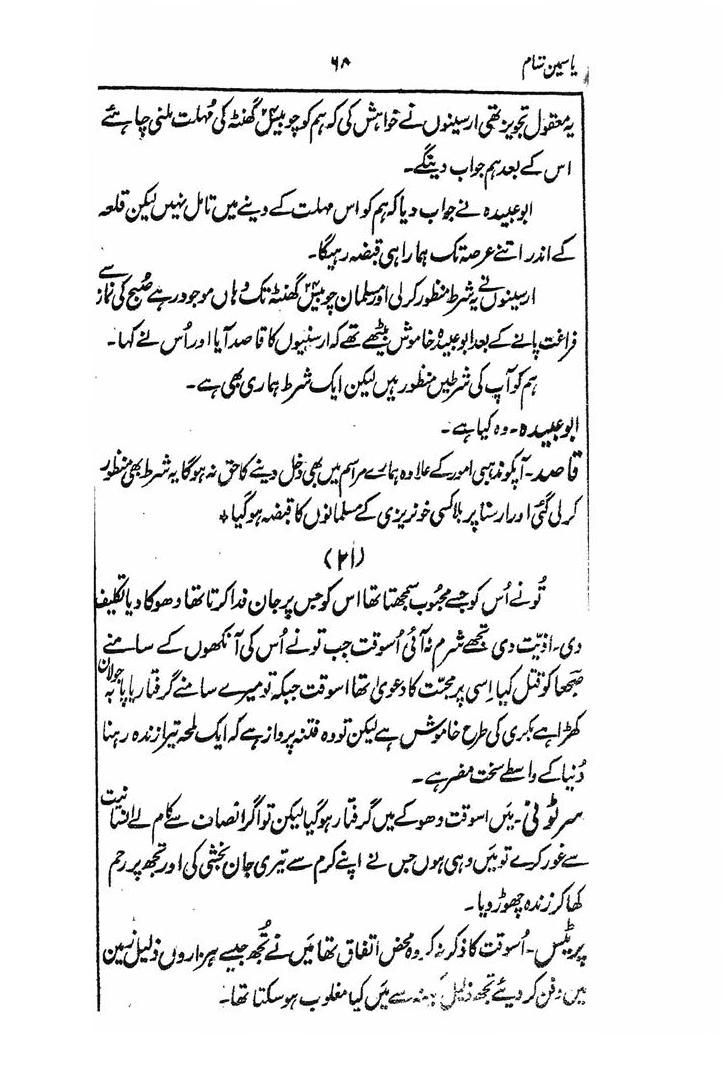 یاسمین شام
۶۸
یہ معقول تجویز تھی ارسینوں نے خواہش کی کہ ہم کو چوبیس ۲۴ گھنٹہ کی مُہلت ملنی چاہئے
اس کے بعد ہم جواب دینگے۔
ابو عبیدہ نے جواب دیا کہ ہم کو اس مہلت کے دینے میں تامل نہیں لیکن قلعہ
کے اندر اتنے عرصۃ تک ہمارا ہی قبضہ رہیگا۔
ارسینوں نے یہ شرط منظور کر لی اور مسلمان چوبیس ۲۴ گھنٹہ تک وہاں موجود رہے صُبح کی نماز سے
فراغت پانے کے بعد ابو عبیدہ خاموش بیٹھے تھے کہ ارسنیوں کا قاصد آیا اور اُس نے کہا۔
ہم کو آپ کی شرطیں منظور ہیں لیکن ایک شرط ہماری بھی ہے۔
ابو عبیدہ۔ وہ کیا ہے۔
قاصد۔ آپکو مذہبی امور کے علاوہ ہمارے مراسم میں بھی دخل دینے کا حق نہ ہو گا یہ شرط بھی منظور
کر لی گئی اور ارسنا پر بلا کسی خونریزی کے مسلمانوں کا قبضہ ہو گیا ٭
(۲۱)
تُو نے اُس کو جسے محبُوب سمجھتا تھا اس کو جس پر جان فدا کرتا تھا دھوکا دیا تکلیف
دی۔ اذیّت دی تجھے شرم نہ آئی اُسوقت جب تو نے اُس کی آنکھوں کے سامنے
ضحعا کو قتل کیا اِسی پر محبّت کا دعویٰ تھا اسوقت جبکہ تو میرے سامنے گرفتار پا بہ جولاں
کھڑا ہے بکری کی طرح خاموش ہے لیکن تو وہ فتنہ پرواز ہے کہ ایک لمحہ تیرا زندہ رہنا
دُنیا کے واسطے سخت مضر ہے۔
سرٹونی۔ میَں اسوقت دھوکے میں گرفتار ہو گیا لیکن تو اگر انصاف سے کام لے انسانیت
سے غور کرے تو میَں وہی ہوں جس نے اپنے کرم سے تیری جان بخشی کی اور تجھ پر رحم
کھا کر زندہ چھوڑ دیا۔
پریٹس۔ اُسوقت کا ذکر نہ کر وہ محض اتفاق تھا میَں نے تُجھ جیسے ہزاروں ذلیل زمین
میں دفن کر دیئے تجھ ذلیل سے میَں کیا مغلوب ہو سکتا تھا۔